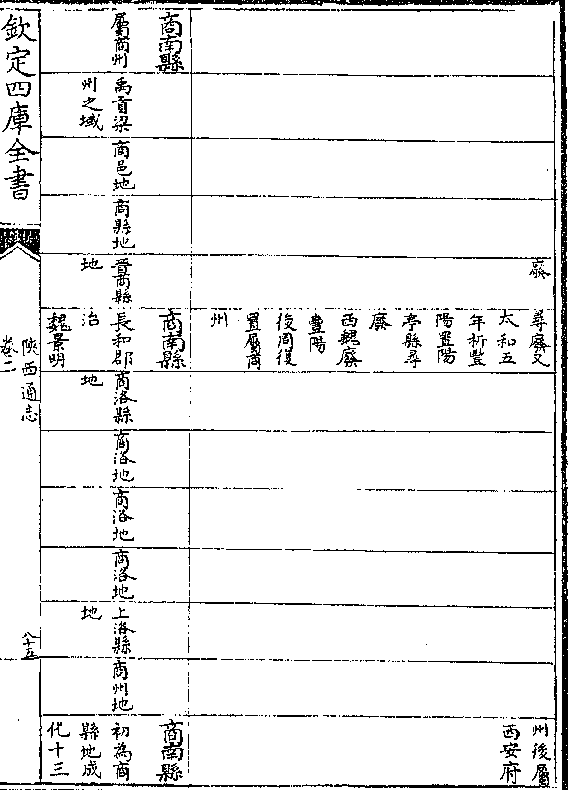 廢
尋廢又
太和五
年析豐
陽置陽
亭縣尋
廢
西魏廢
豐陽
後周復
置屬商
州
州後屬
西安府
商南縣
屬商州
禹貢梁
州之域
商邑地
商縣地
晉商縣
地
商南縣
長和郡
治
魏景明
商洛縣
地
商洛地
商洛地
商洛地
上洛縣
地
商州地
商南縣
初為商
縣地成
化十三
欽定四庫全書
陝西通志
卷二
八十五